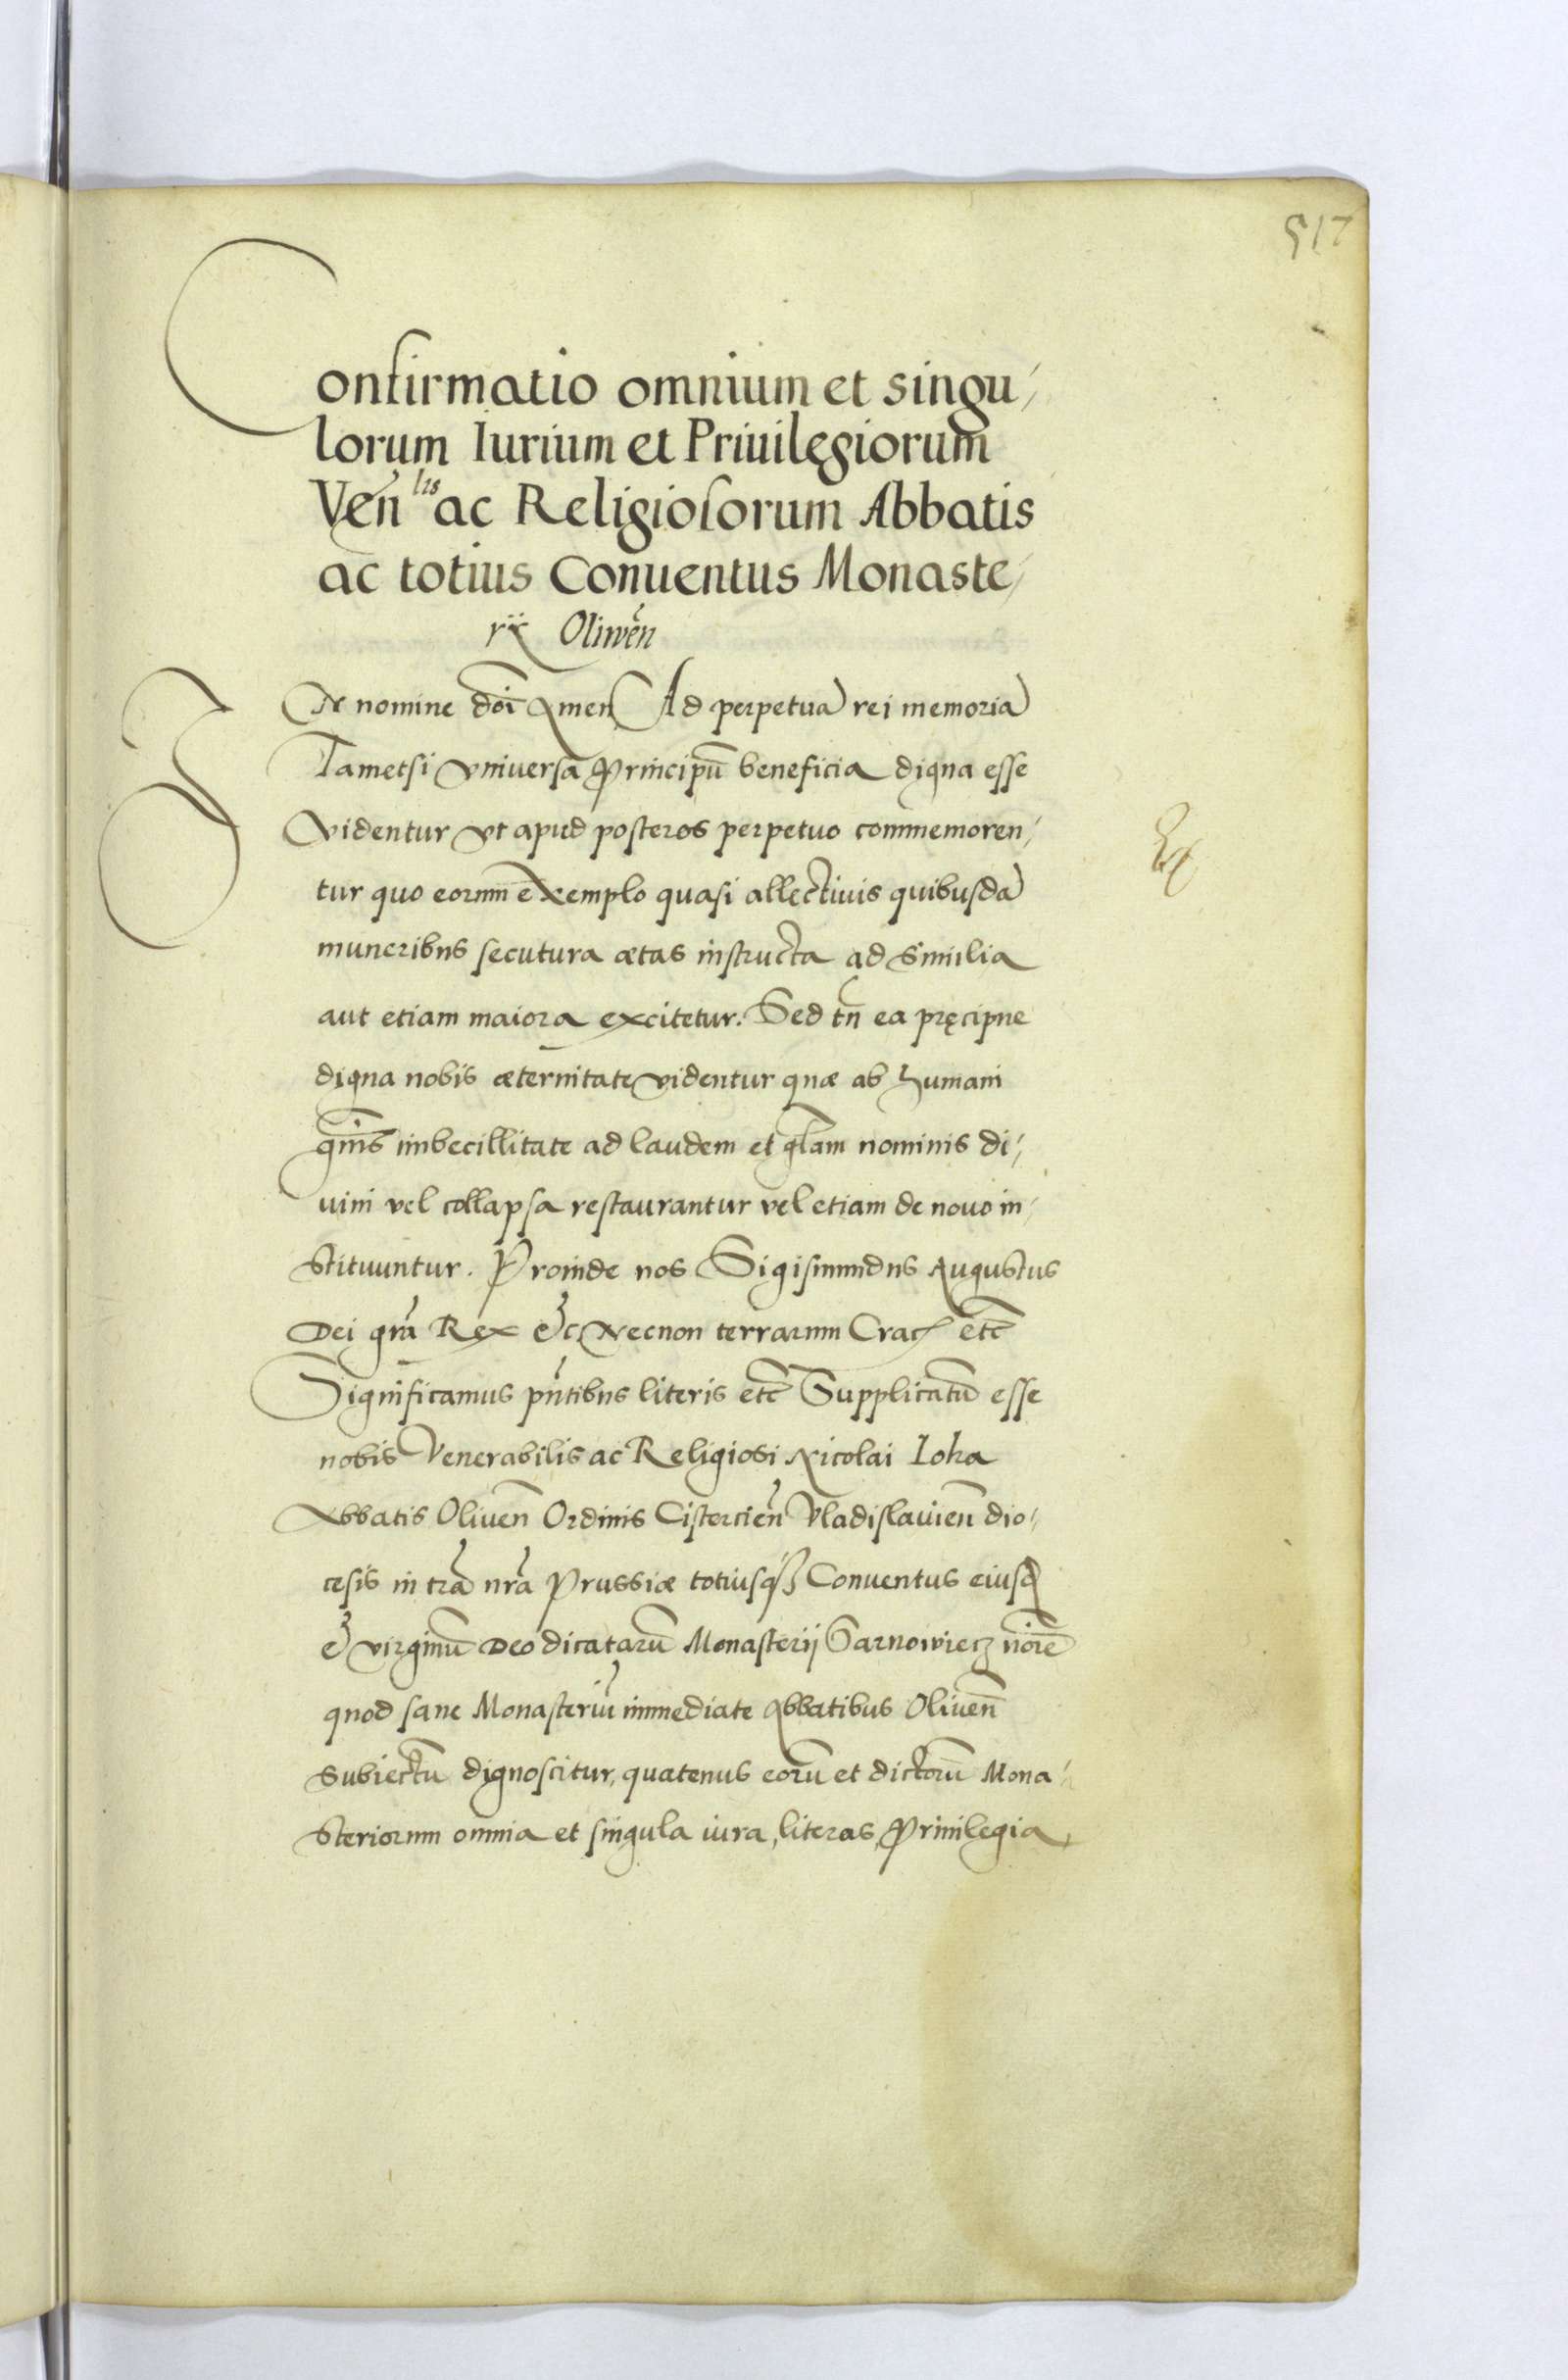 517
Confirmatio omnium et singu/
lorum Iurium et Priuilęgiorum
Ven̄lis ac Religiosorum Abbatis
ac totius Conuentus Monaste/
rij Oliwen̄
IN nomine dn̄i Amen Ad perpetuā rei memoriā
Tametsi vniuersa Principū beneficia digna esse
videntur vt apud posteros perpetuo commemoren/
tur quo eorum exemplo quasi allectiuis quibusdā
muneribus secutura ætas instructa ad similia
aut etiam maiora excitetur. Sed tn̄ ea pręcipue
digna nobis æternitate videntur quæ ab humani
gn̄is imbecillitate ad laudem et gl̄am nominis di/
uini vel collapsa restaurantur vel etiam de nouo in/
stituuntur. Proinde nos Sigismundus Augustus
Dei grā Rex etc Necnon terrarum Crac̄ etc̄
Significamus pn̄tibus literis etc̄ Supplicatū esse
nobis Venerabilis ac Religiosi Nicolai Loka
Abbatis Oliuen̄ Ordinis Cistercien̄ Vladislauien̄ dio/
cesis in trā nrā Prussiæ totiusq3 Conuentus eiusd̄
et virginū Deo dicatarū Monasterij Sarnowiecz noīe
quod sane Monasteriū immediate Abbatibus Oliuen̄
subiectū dignoscitur, quatenus eorū et dictorū Mona/
steriorum omnia et singula iura, literas, Priuilegia,